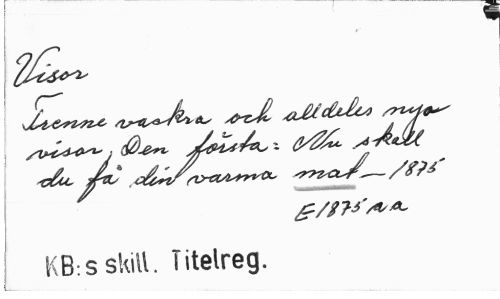 Visor
Trenne vackra och alldeles nya
visor, Den första: Nu skall
du få din varma mat – 1875
E1875 aa
KB:s skill. Titelreg.